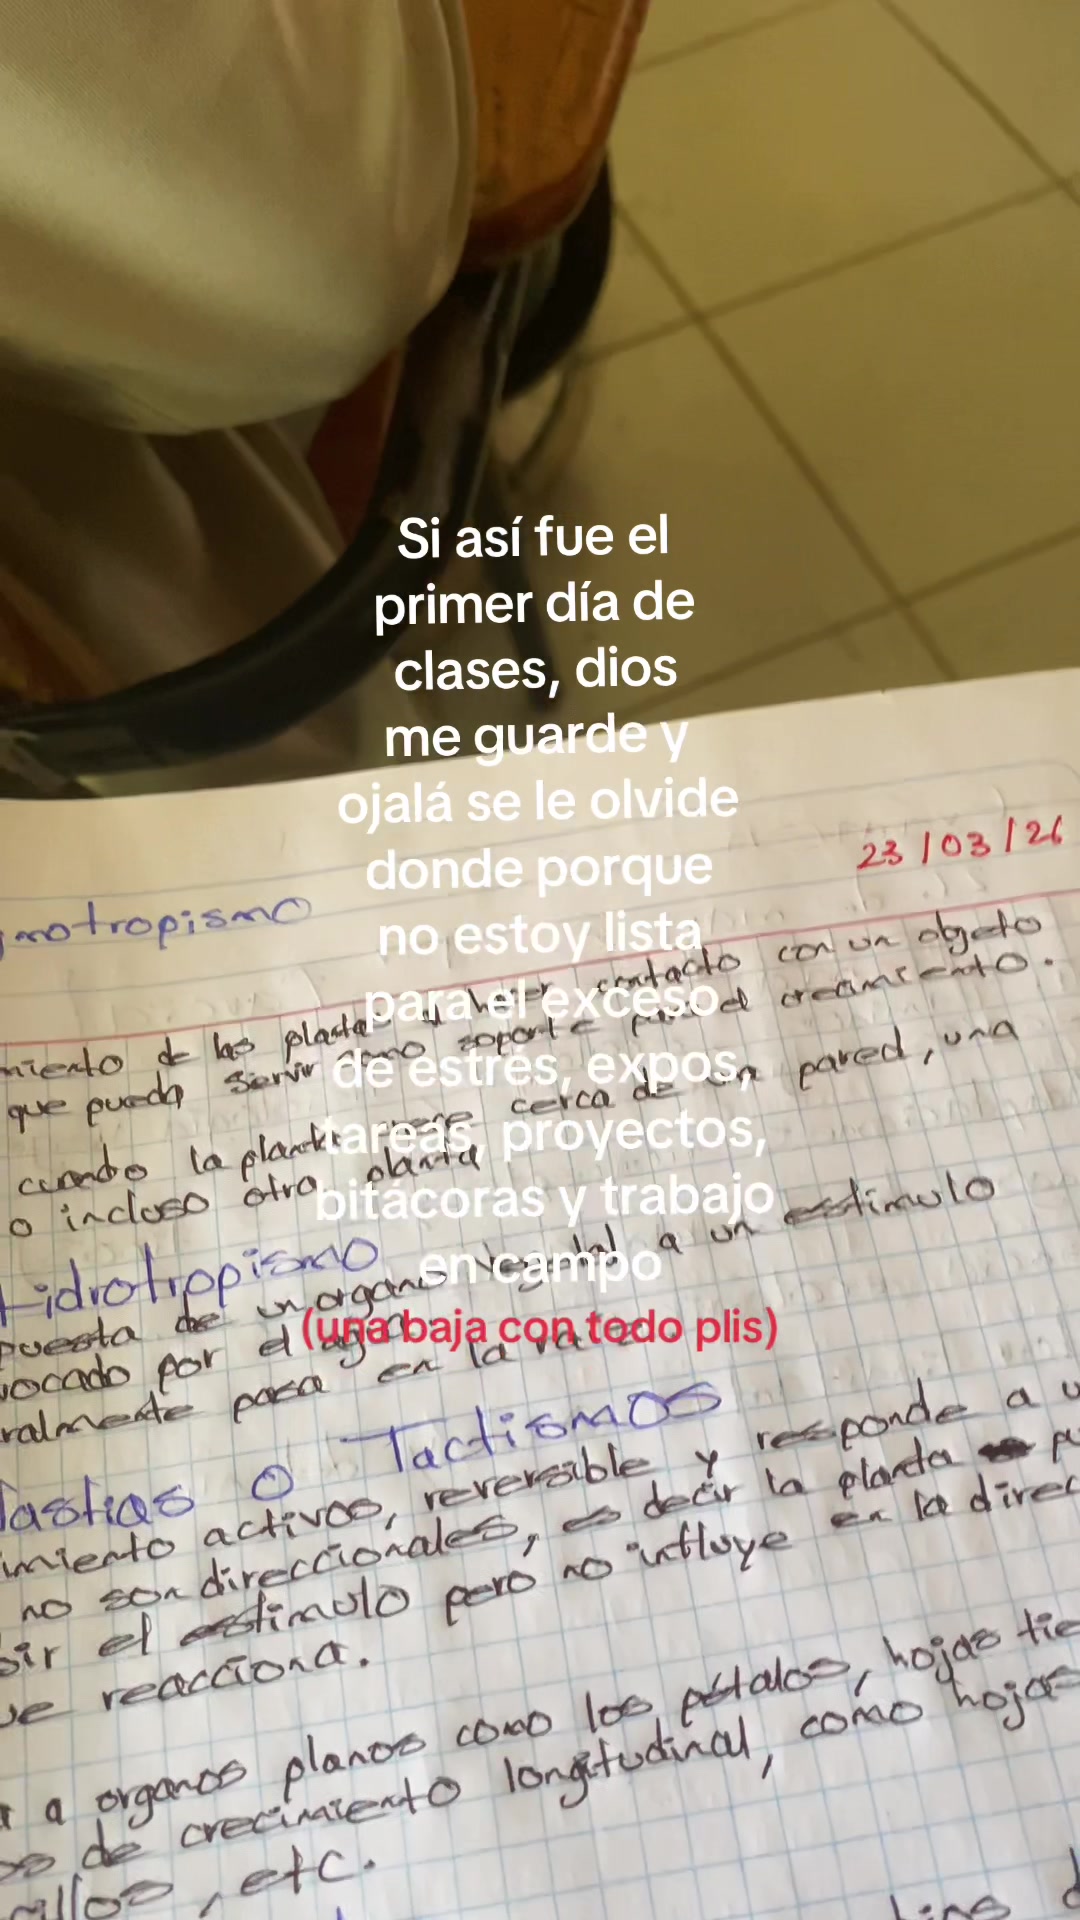 Si así fue el
primer día de
clases, dios
me guarde y
ojalá se le olvide
donde porque
no estoy lista
para el exceso
de estrés, expos,
tareas, proyectos,
bitácoras y trabajo
en campo
(una baja con todo plis)
23/03/26
motropismo
miento de las plantas contacto con un objeto
que pueda servir como soporte crecimiento.
cuando la planta crece cerca de una pared, una
o incluso otra planta
Hidrotropismo
puesta de un organo vegetal a un estimulo
vocado por el agua
ralmente pasa en la
Nastias o Tactismos
imiento activos, reversible y responde a u
no son direccionales, es decir la planta pu
bir el estimulo pero no influye en la direc
ue reacciona.
a organos planos como los petalos, hojas tie
de crecimiento longitudinal, como hojas
illos, etc.